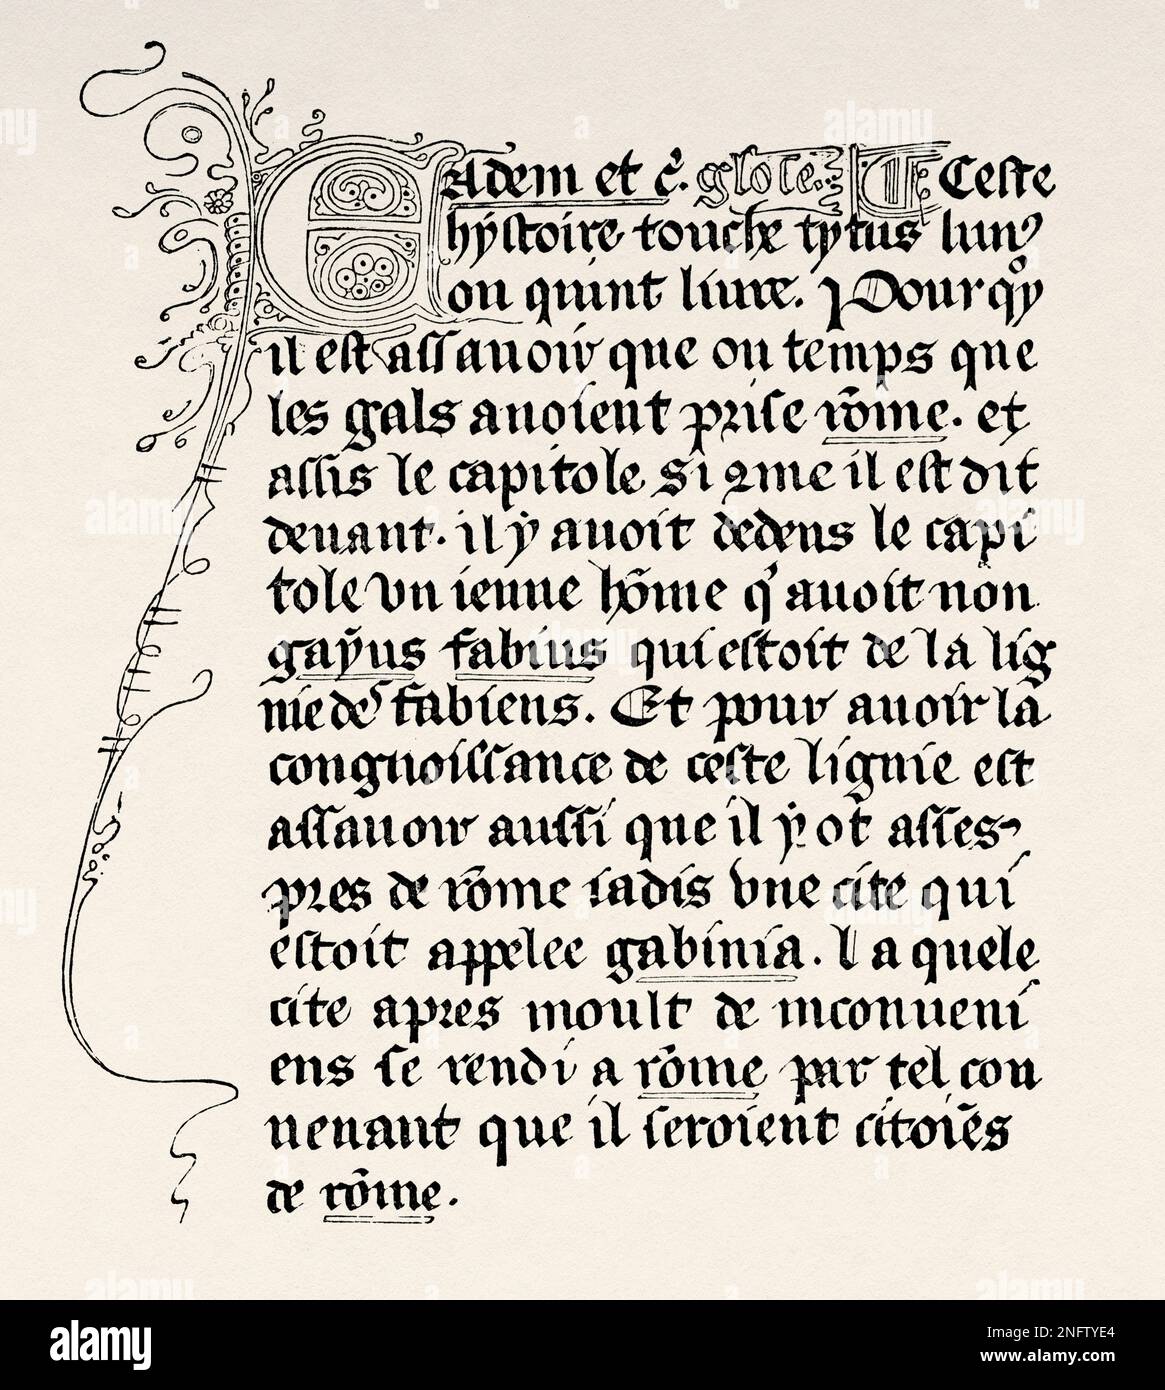 EAdem et c̉. glose. ¶ Ceste
hystoire touche tytus liuiꝰ
ou quint liure. Pour qͦy
il est assauoir que ou temps que
les gals auoient prise rōme. et
assis le capitole si 2me il est dit
deuant. il ẏ auoit dedens le capi
tole vn ieune hōme q̉ auoit non
gaẏus fabius qui estoit de la lig
nie des fabiens. Et pour auoir la
congnoissance de ceste lignie est
assauoir aussi que il ẏ ot asses
pres de rōme iadis vne cite qui
estoit appelee gabinia. La quele
cite apres moult de inconueni
ens se rendi a rōme par tel con
uenant que il seroient citoiēs
de rōme.
alamy
Image ID: 2NFTYE4
www.alamy.com